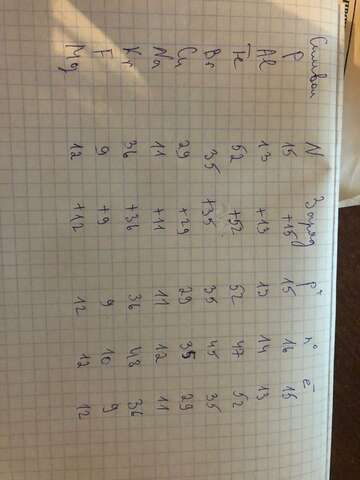 Символ N Заряд p⁺ n⁰ e⁻
P 15 +15 15 16 15
Al 13 +13 13 14 13
Te 52 +52 52 47 52
Br 35 +35 35 45 35
Cu 29 +29 29 35 29
Na 11 +11 11 12 11
Kr 36 +36 36 48 36
F 9 +9 9 10 9
Mg 12 +12 12 12 12